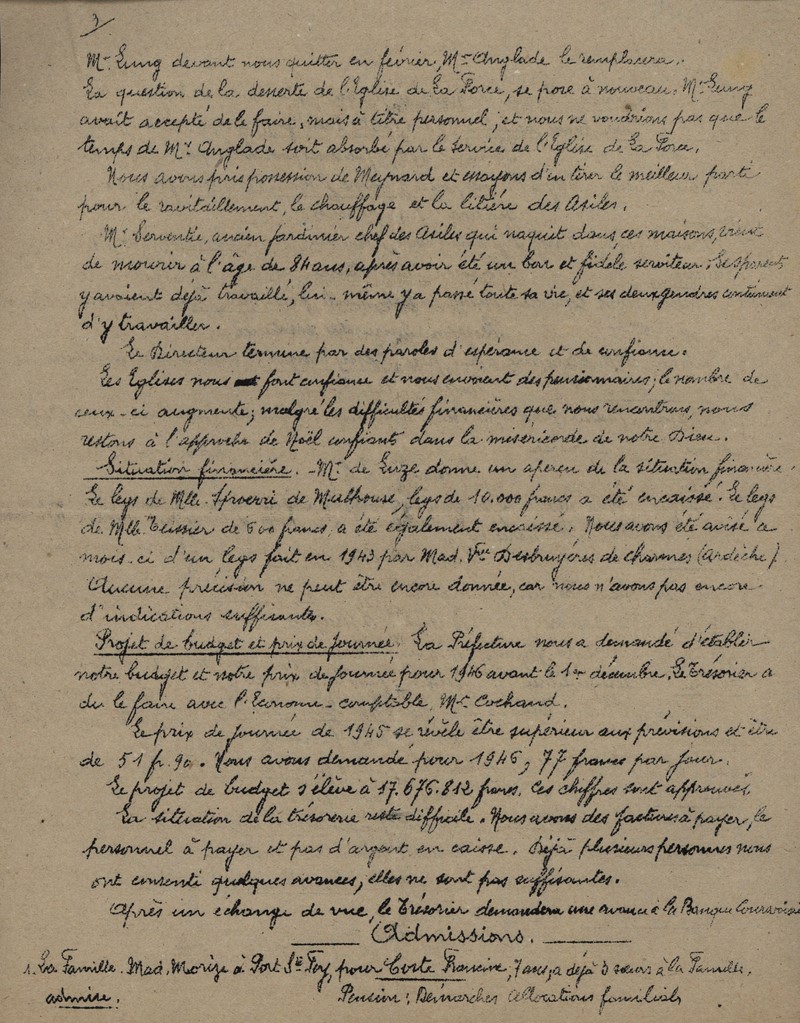 3/
Mr. Lung devant nous quitter en février, Mr. Anglade le remplacera.
La question de la desserte de l'Eglise de La Force, se pose à nouveau. Mr. Lung
avait accepté de le faire, mais à titre personnel, et nous ne voudrions pas que le
temps de Mr. Anglade soit absorbé par le service de l'Eglise de La Force.
Nous avons pris possession de Meynard et essayons d'en tirer le meilleur parti
pour le ravitaillement, le chauffage et la litière des Asiles.
Mr. Serventie, ancien jardinier chef des Asiles qui naquit dans ces maisons, vient
de mourir à l'âge de 84 ans, après avoir été un bon et fidèle serviteur. Ses parents
y avaient déjà travaillé, lui-même y a passé toute sa vie, et ses deux gendres continuent
d'y travailler.
Le Directeur termine par des paroles d'espérance et de confiance.
Les Eglises nous font confiance et nous envoient des pensionnaires; le nombre de
ceux-ci augmente; malgré les difficultés financières que nous rencontrons, nous
restons à l'approche de Noël confiant dans la miséricorde de notre Dieu.
Situation financière. - Mr. de Luze donne un aperçu de la situation financière.
Le legs de Mlle de Mulhouse, legs de 10.000 francs a été encaissé. Le legs
de Mlle Teissier de 500 francs a été également encaissé. Nous avons été avisé ce
mois-ci d'un legs fait en 1943 par Mad. Vve Desbruyères de Charmes (Ardèche).
Aucune précision ne peut être encore donnée, car nous n'avons pas encore
d'indications suffisantes.
Projet de budget et prix de journée. La Préfecture nous a demandé d'établir
notre budget et notre prix de journée pour 1946 avant le 1er décembre. Le Trésorier a
du le faire avec l'Econome-comptable, Mr. Cochand.
Le prix de journée de 1945 se révèle être supérieur aux prévisions et être
de 51 fr. 90. Nous avons demandé pour 1946, 77 francs par jour.
Le projet de budget s'élève à 17.676.812 francs. Ces chiffres sont approuvés.
La situation de la trésorerie reste difficile. Nous avons des factures à payer, le
personnel à payer et pas d'argent en caisse. Déjà plusieurs personnes nous
ont consenti quelques avances, elles ne sont pas suffisantes.
Après un échange de vue, le Trésorier demandera une avance à la Banque Courvoisier
Admissions.
1. La Famille. Mad. Morize à Port Ste Foy, pour Coste Francine, 7 ans, a déjà 3 sœurs à la Famille.
admise. Pension: Démarches Allocations familiales